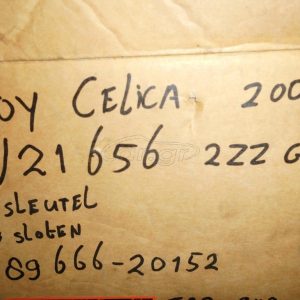 OY CELICA 200
/21 656 2ZZ G
SLEUTEL
SLOTEN
89666-20152